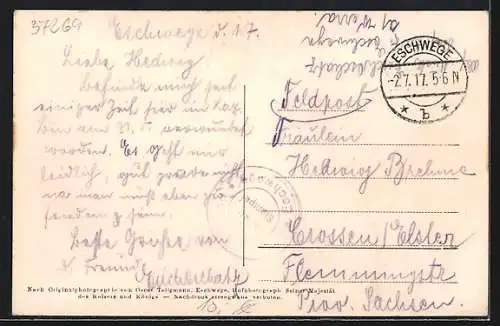 37269
Eschwege d. 1.7.
Liebe Hedwig
befinde mich seit
einiger Zeit hier im Laz.
Bin am verwundet
worden. Es geht mir
leidlich, gut gerade nicht
na man muß eben zu-
frieden z. sein.
Beste Grüße von
Freund
Eschwege
a/ Werra.
ESCHWEGE
-2.7.17. 5-6 N
* b *
Feldpost
Fräulein
Hedwig Brehme
Crossen/Elster
Flemmingstr
Prov. Sachsen.
Nach Originalphotographie von Oscar Tellgmann, Eschwege, Hofphotograph Seiner Majestät
des Kaisers und Königs — Nachdruck strengstens verboten.